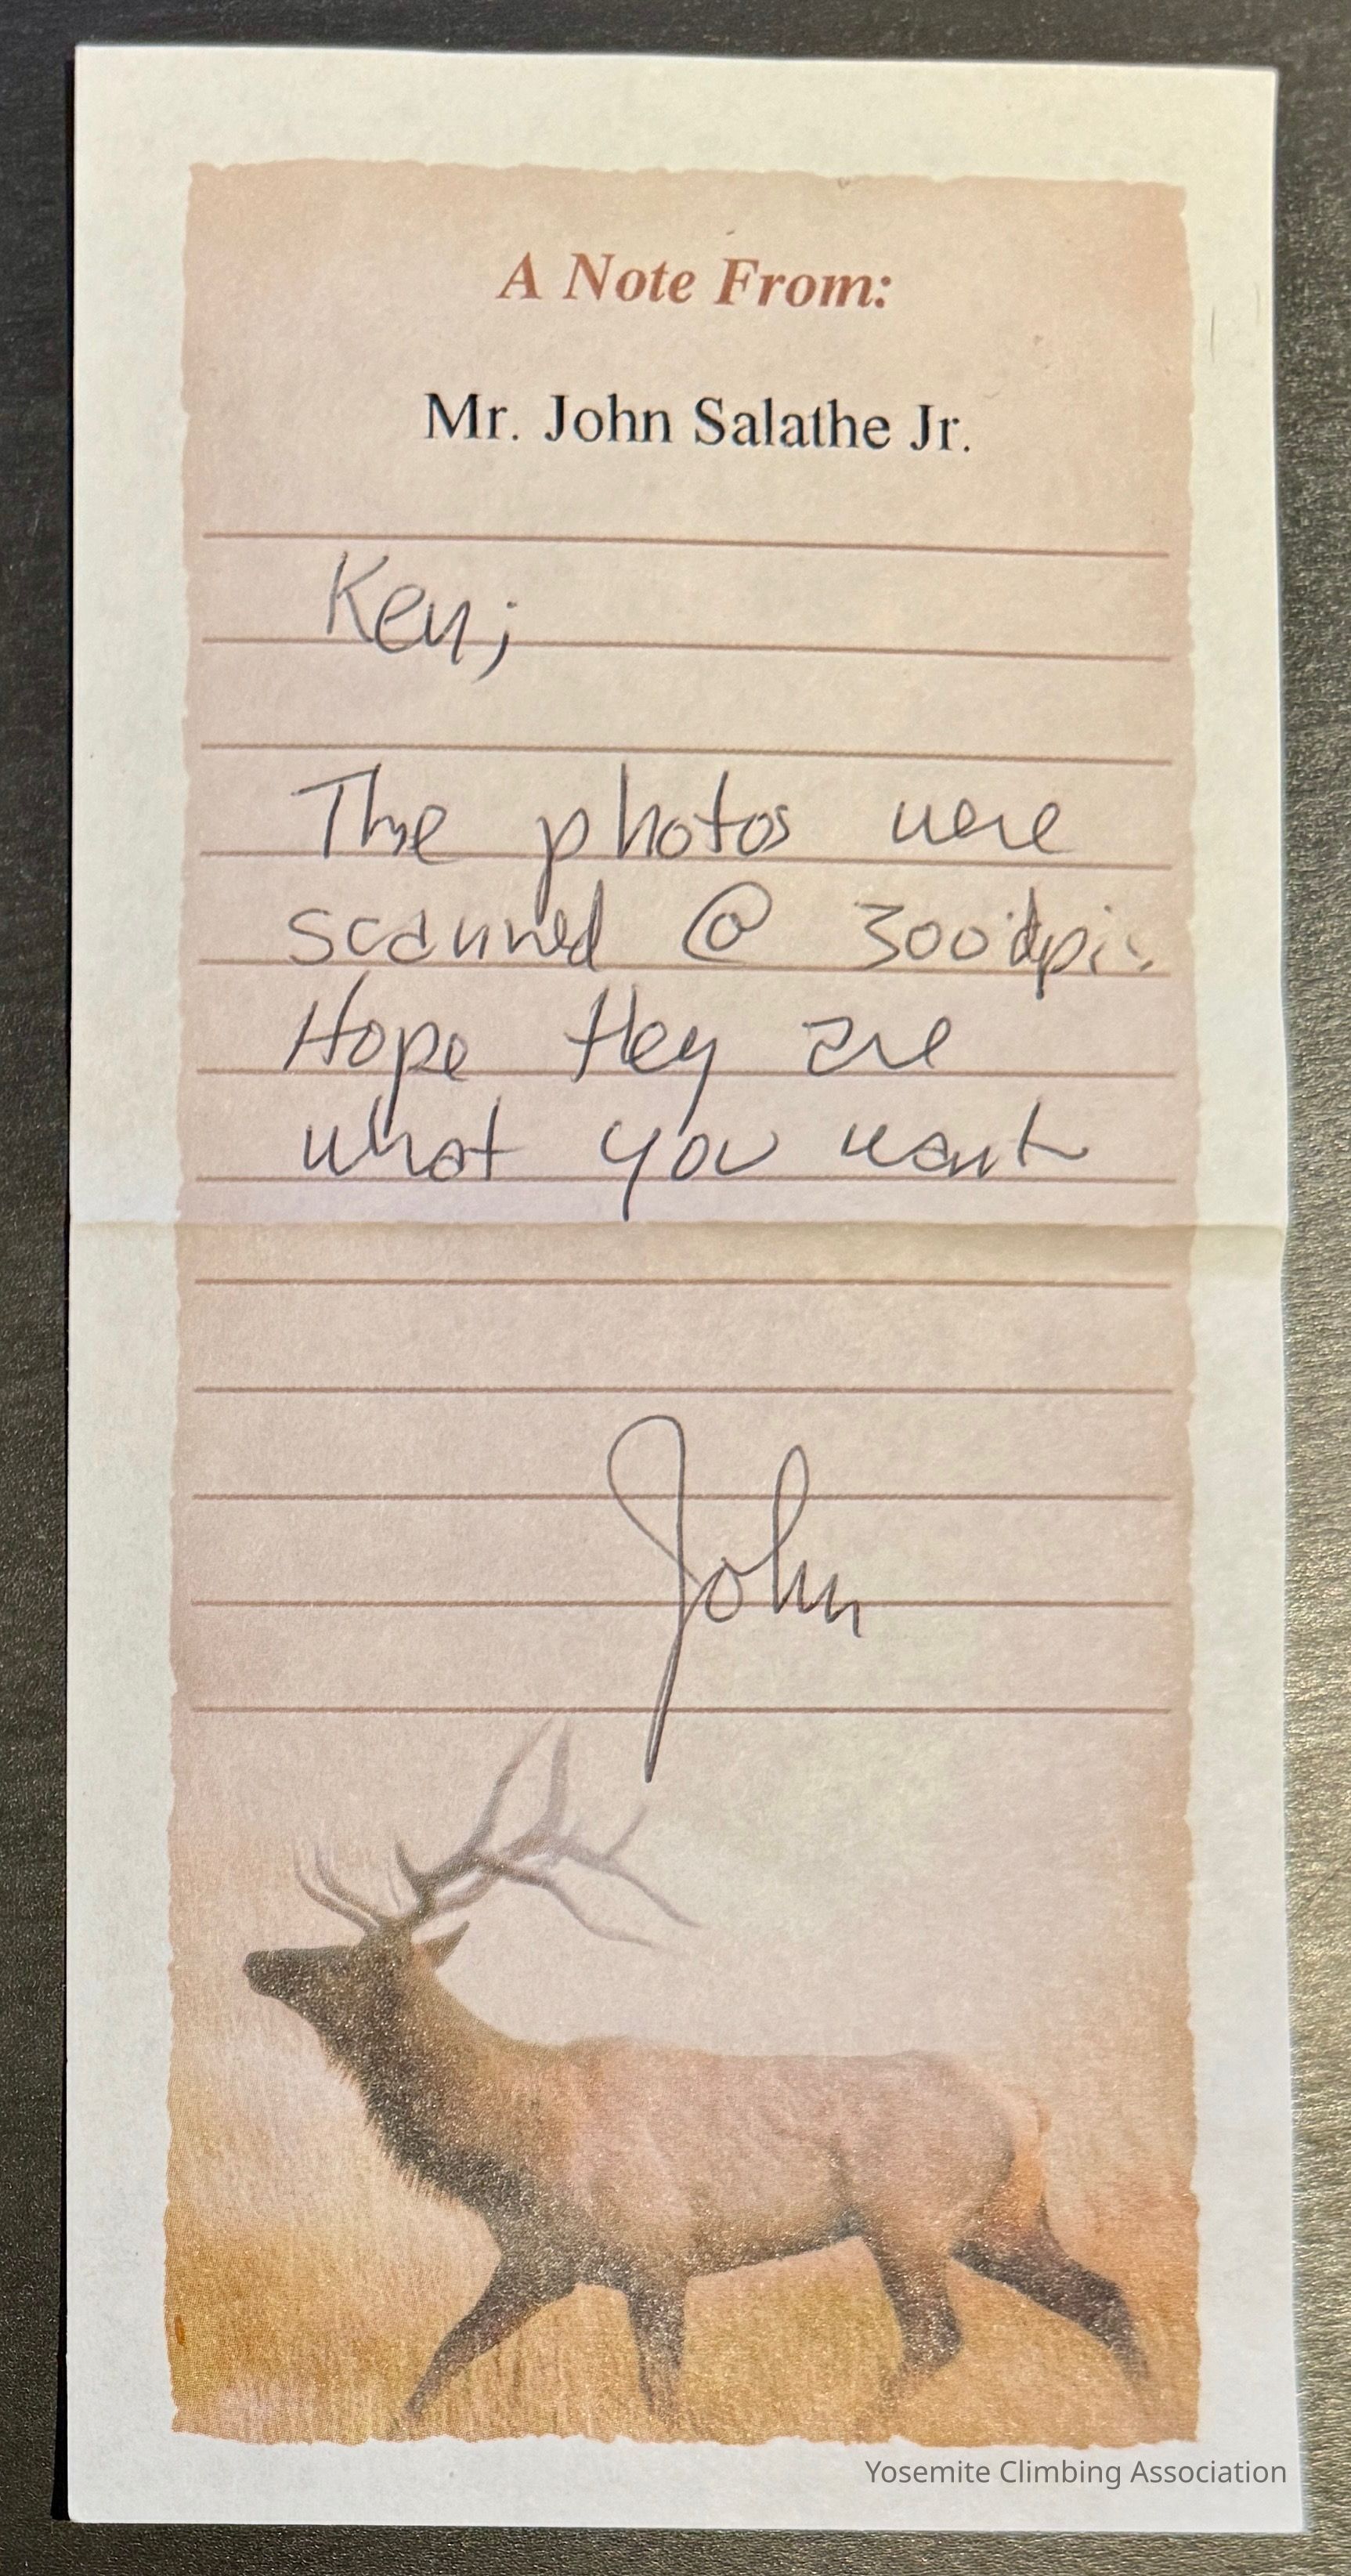 A Note From:
Mr. John Salathe Jr.
Ken;
The photos were
scanned @ 300 dpi.
Hope they are
what you want
John
Yosemite Climbing Association